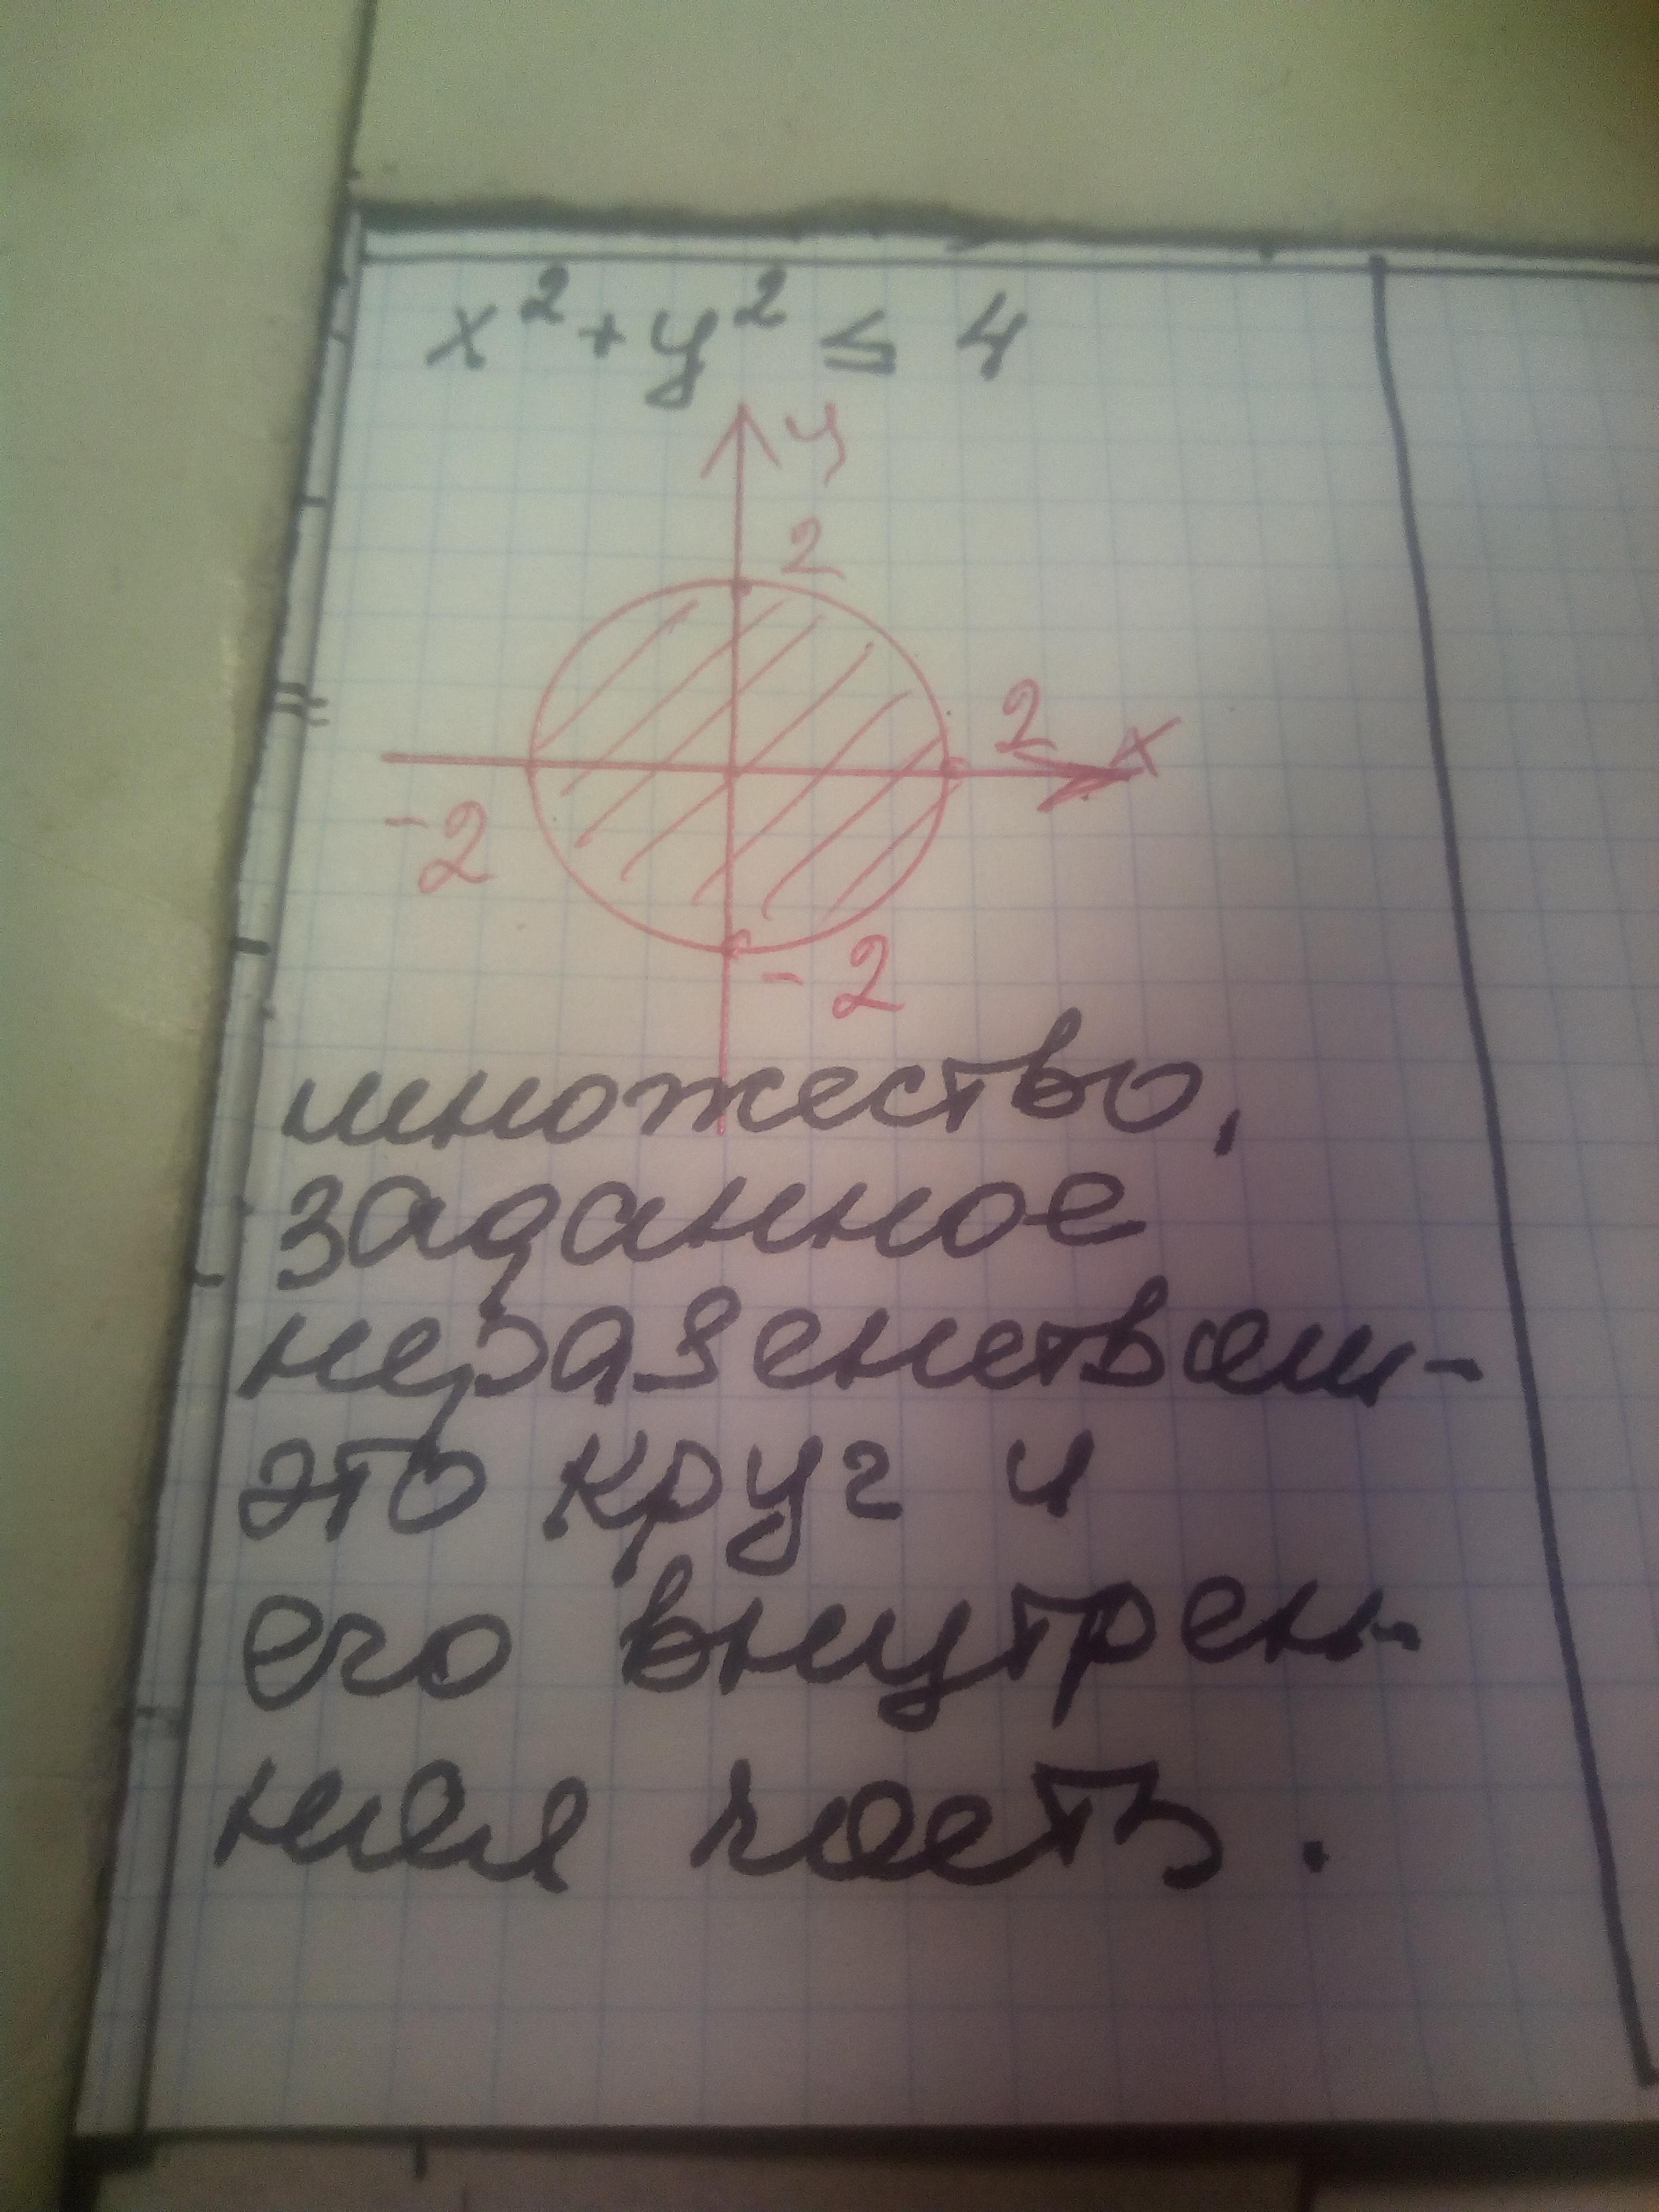 x² + y² ≤ 4
y
2
2 x
-2
-2
множество,
заданное
неравенством-
это круг и
его внутрен-
няя часть.